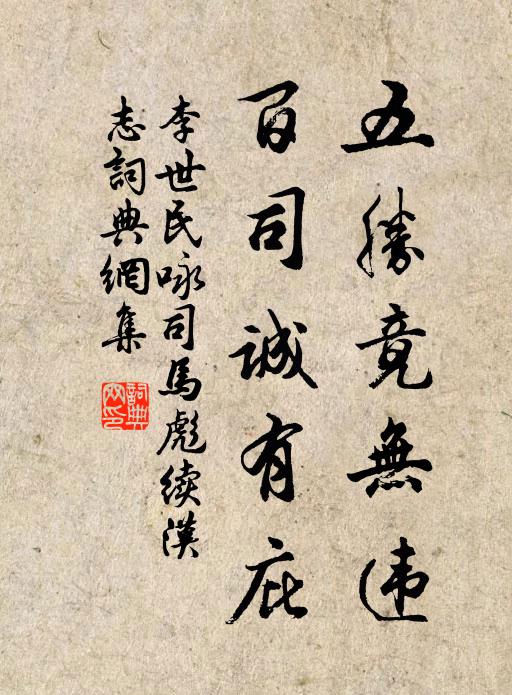 五勝竟無違
百司誠有庇
李世民咏司馬彪续漢
志詞典網集
詞典网印